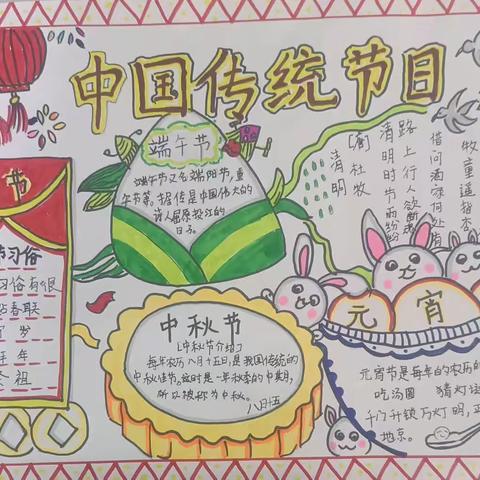 中国传统节日
节
节习俗
习俗有很
春联
岁
拜年
祖
端午节
端午节又名端阳节,重
午节等。据传是中国伟大的
诗人屈原投江的
日子
清明
[唐]杜牧
清明时节雨纷纷
路上行人欲断魂
借问酒家何处有
牧童遥指杏
中秋节
[中秋节介绍]
每年农历八月十五日,是我国传统的
中秋佳节。这时是一年秋季的中期,
所以被称为中秋。
八月十五
元宵
元宵节是每年的农历的
吃汤圆 猜灯
千门开锁万灯明,正
地京。